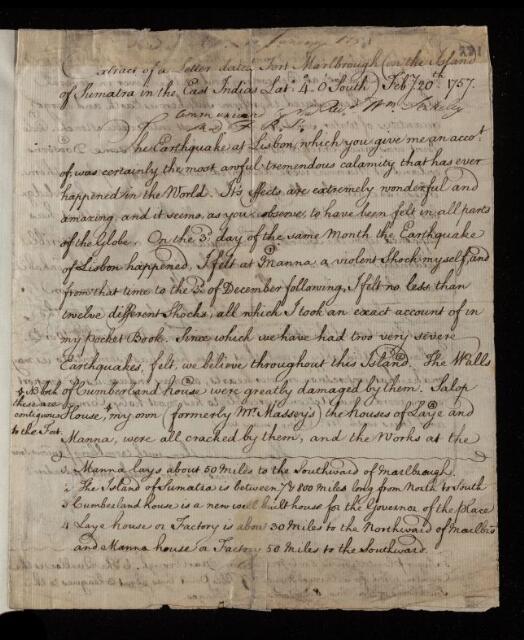 Extract of a Letter dated Fort Marlbrough (in the Island
of Sumatra in the East Indias Lat: 4. 0 South) Feb.ʸ 20.th 1757.
Communicated by the Rev.d Wm. Stukely
M.D. F.R.S.
The Earthquake at Lisbon, which you give me an acco.t
of, was certainly the most awful tremendous calamity that has ever
happened in the World. Its effects are extremely wonderful and
amazing, and it seems, as you observe, to have been felt in all parts
of the Globe. On the 3.d day of the same Month the Earthquake
of Lisbon happened, I felt at Manna a violent Shock myself, and
from that time to the 3.d of December following, I felt no less than
twelve different Shocks, all which I took an exact account of in
my pocket Book. Since which we have had two very severe
Earthquakes, felt, we believe throughout this Island. The Walls
of Cumberland house were greatly damaged by them. Salop
House, my own (formerly Mr. Massey's) the houses of Laye and
Manna, were all cracked by them, and the Works at the
both
these are
contiguous
to the Fort.
1. Manna lays about 50 Miles to the Southward of Marlbrough.
2 The Island of Sumatra is between 7 & 800 Miles long from North to South
3 Cumberland house is a new well built house for the Governor of the place
4 Laye house or Factory is about 30 Miles to the Northward of Marlbro
and Manna house or Factory 50 Miles to the Southward.